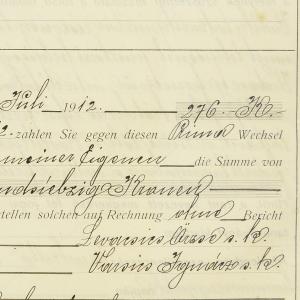 Juli 1912. 276.-K.-
2. zahlen Sie gegen diesen Prima Wechsel
meiner Eigenen die Summe von
undsiebzig Kronen
stellen solchen auf Rechnung ohne Bericht
Levacsics Örzse s. k.
Vacsics Ignácz s. k.